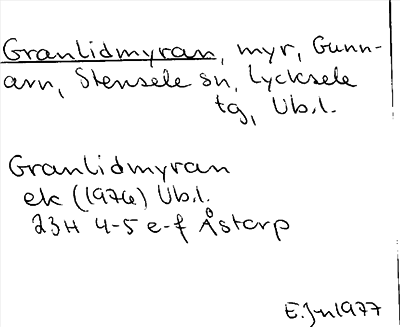 Granlidmyran, myr, Gunn-
arn, Stensele sn, Lycksele
tg, Vb.l.
Granlidmyran
ek (1976) Vb.l.
23H 4-5 e-f Åstorp
E.Jn 1977